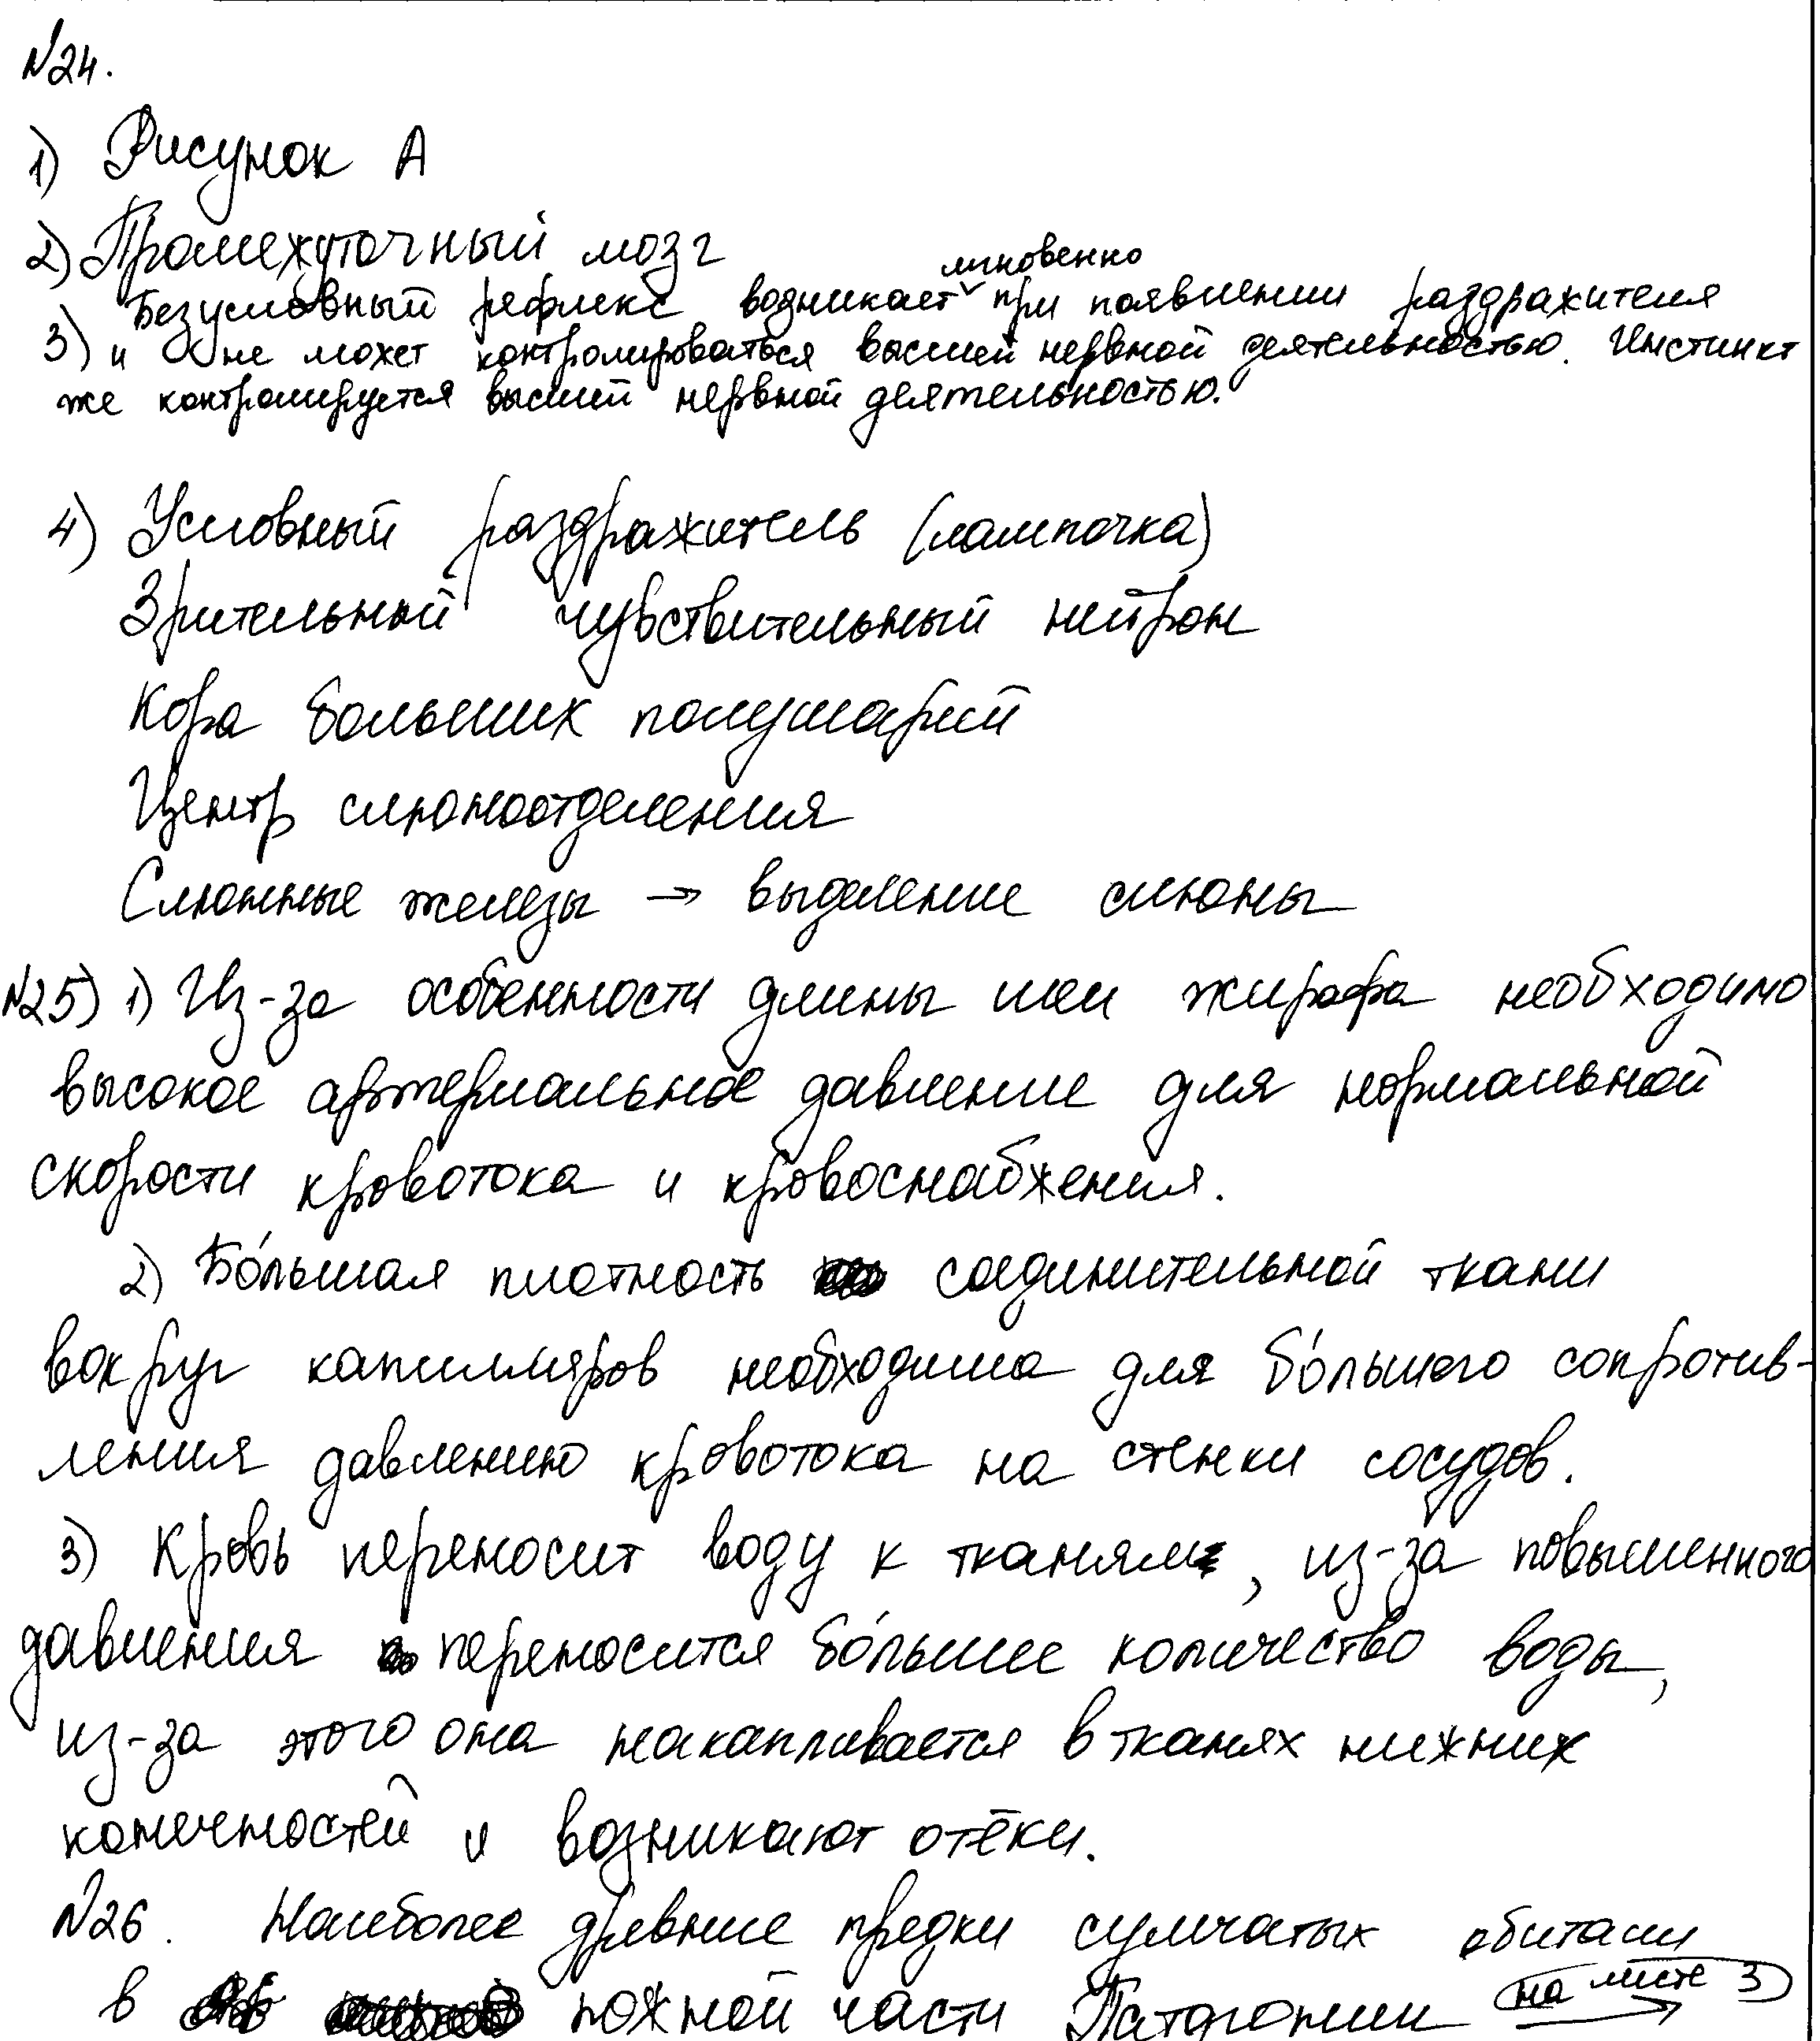 №24.
1) Рисунок А
2) Промежуточный мозг
мгновенно
Безусловный рефлекс возникает при появлении раздражителя
3) и не может контролироваться высшей нервной деятельностью. Инстинкт
же контролируется высшей нервной деятельностью.
4) Условный раздражитель (лампочка)
Зрительный чувствительный нейрон
Кора больших полушарий
Центр слюноотделения
Слюнные железы → выделение слюны
№25) 1) Из-за особенности длины шеи жирафа необходимо
высокое артериальное давление для нормальной
скорости кровотока и кровоснабжения.
2) Бо́льшая плотность соединительной ткани
вокруг капилляров необходима для бо́льшего сопротив-
ления давлению кровотока на стенки сосудов.
3) Кровь переносит воду к тканям, из-за повышенного
давления переносится бо́льшее количество воды,
из-за этого она накапливается в тканях нижних
конечностей и возникают отёки.
№26. Наиболее древние предки сумчатых обитали
в южной части Патагонии на листе 3 →